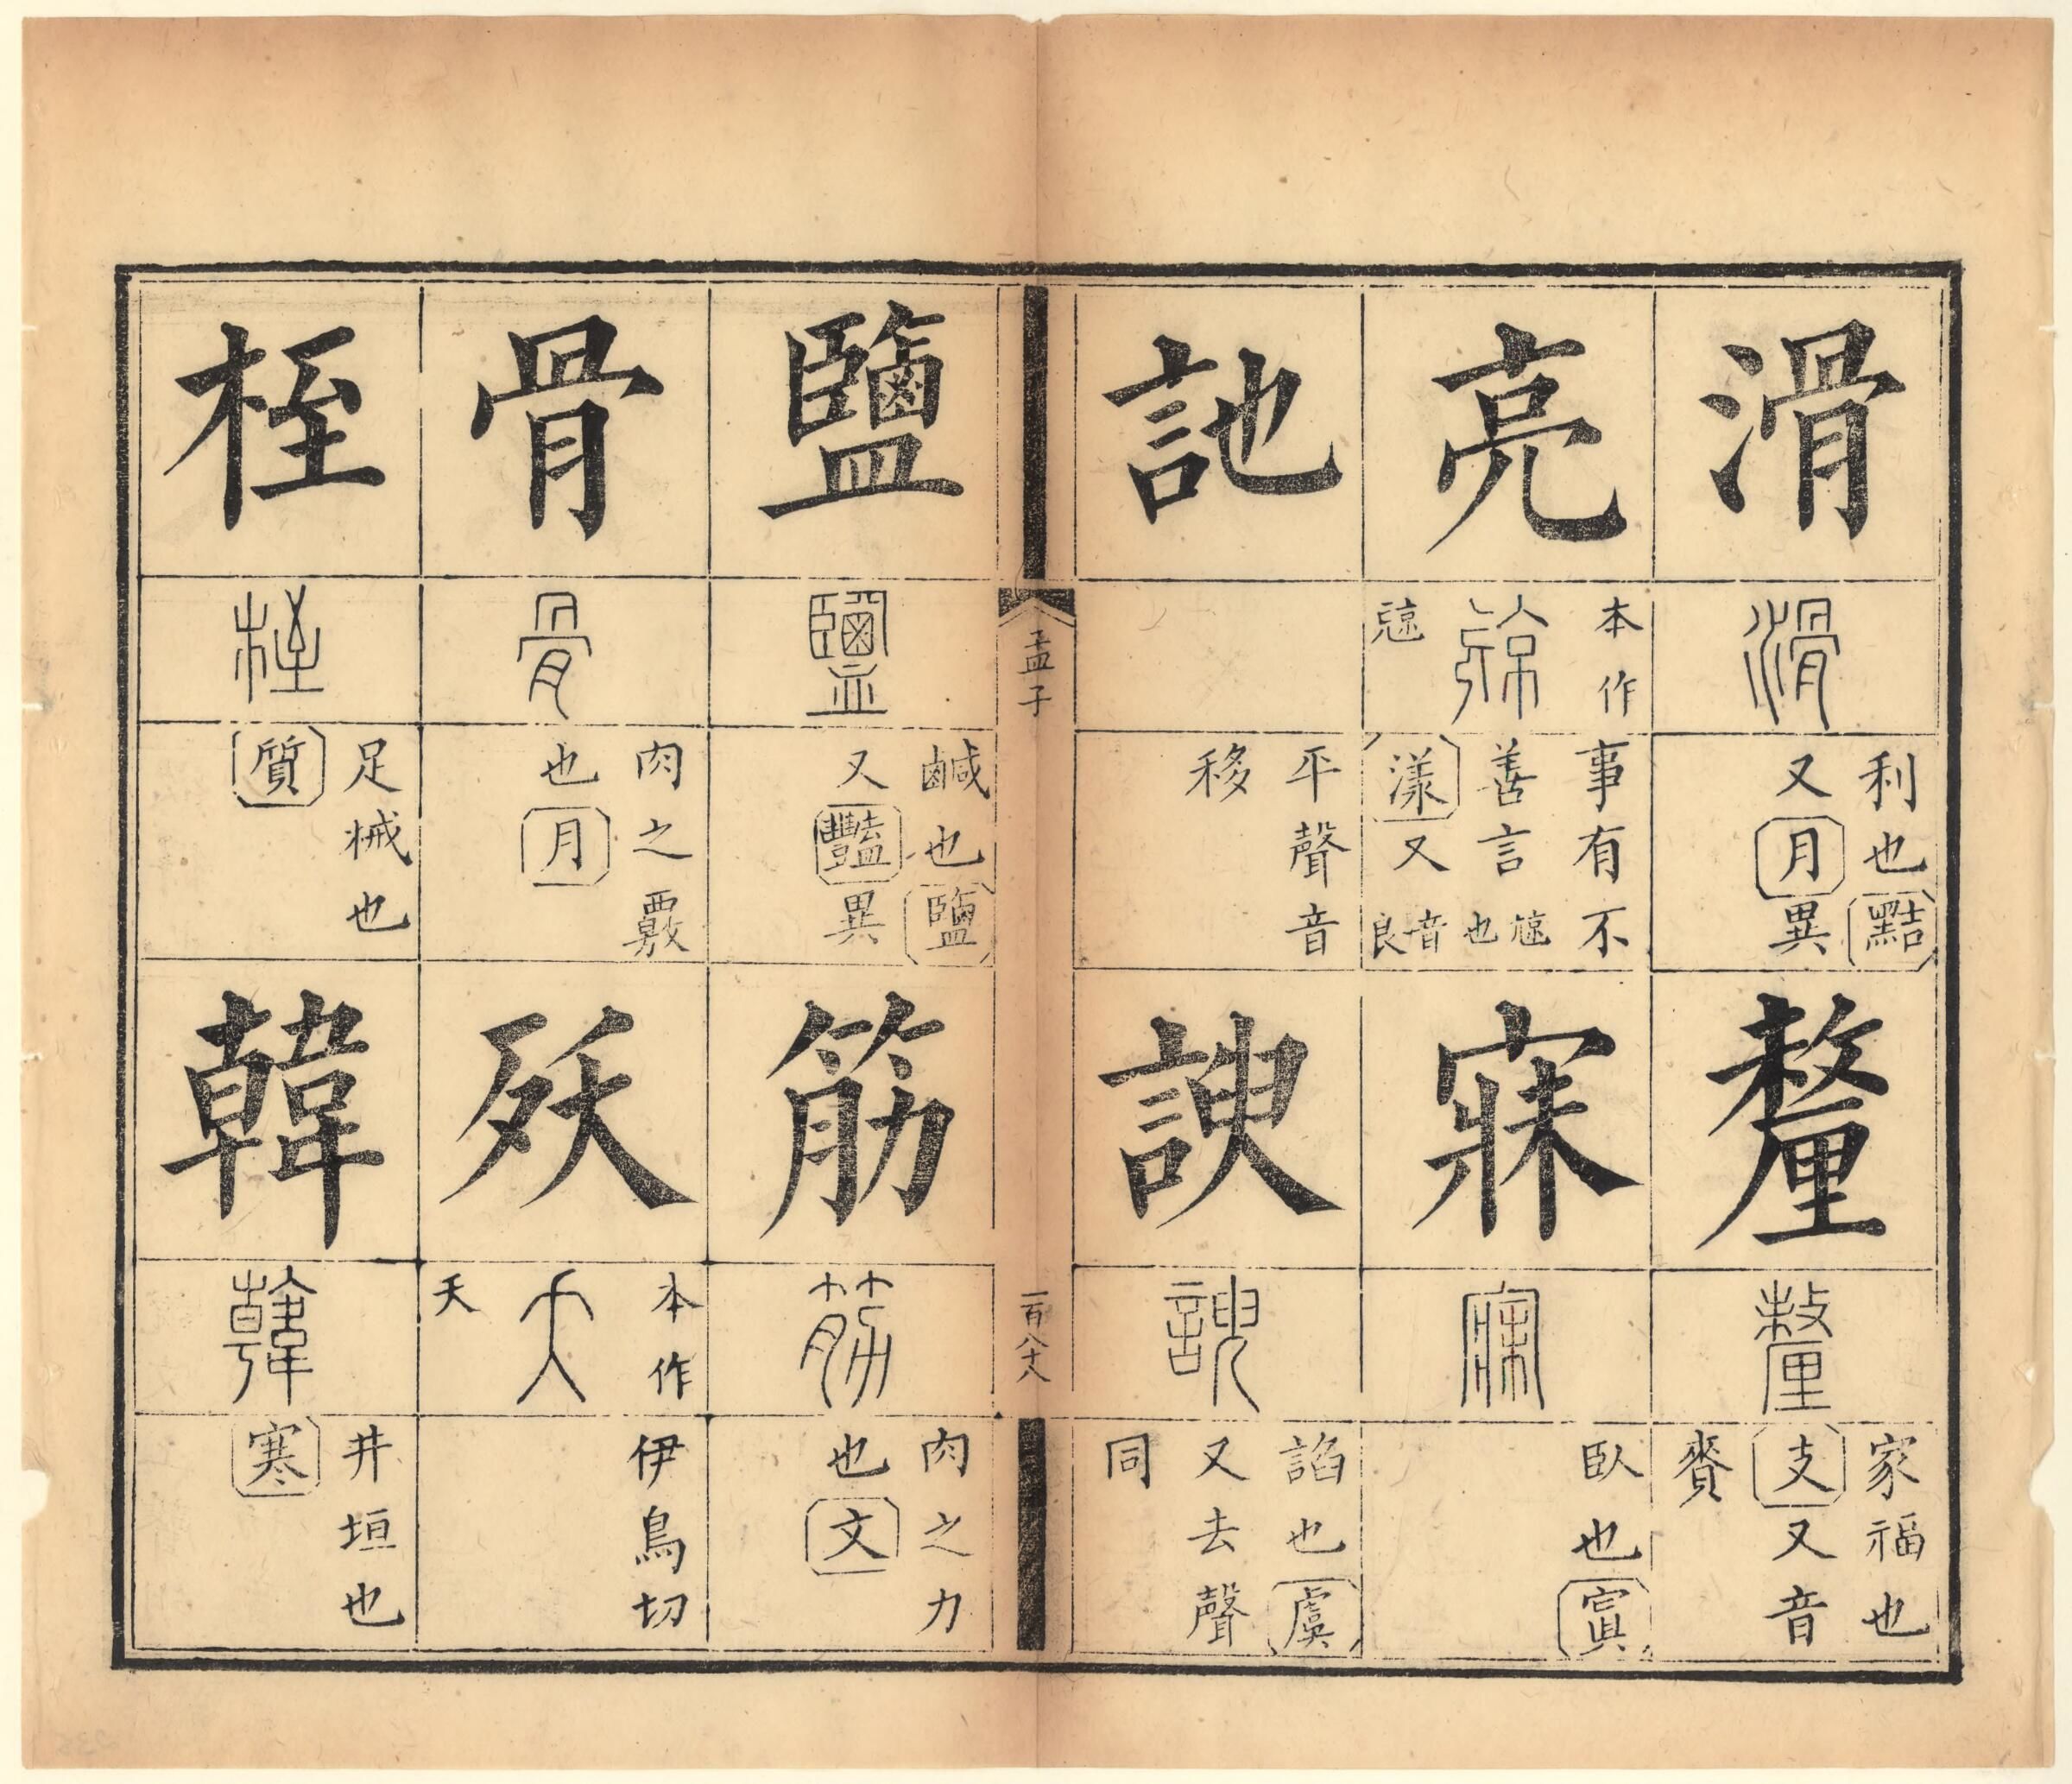 滑
滑
利也黠
又月異
釐
釐
家福也
支又音
賚
亮
本作
㒫
㒫
事有不
善言㒫也
漾又音良
寐
寐
臥也寘
訑
平聲音
移
諛
諛
諂也虞
又去聲
同
孟子
一百八十八
鹽
鹽
鹹也鹽
又豔異
筋
筋
肉之力
也文
骨
骨
肉之覈
也月
殀
本作
夭
夭
伊鳥切
桎
桎
足械也
質
韓
韓
井垣也
寒